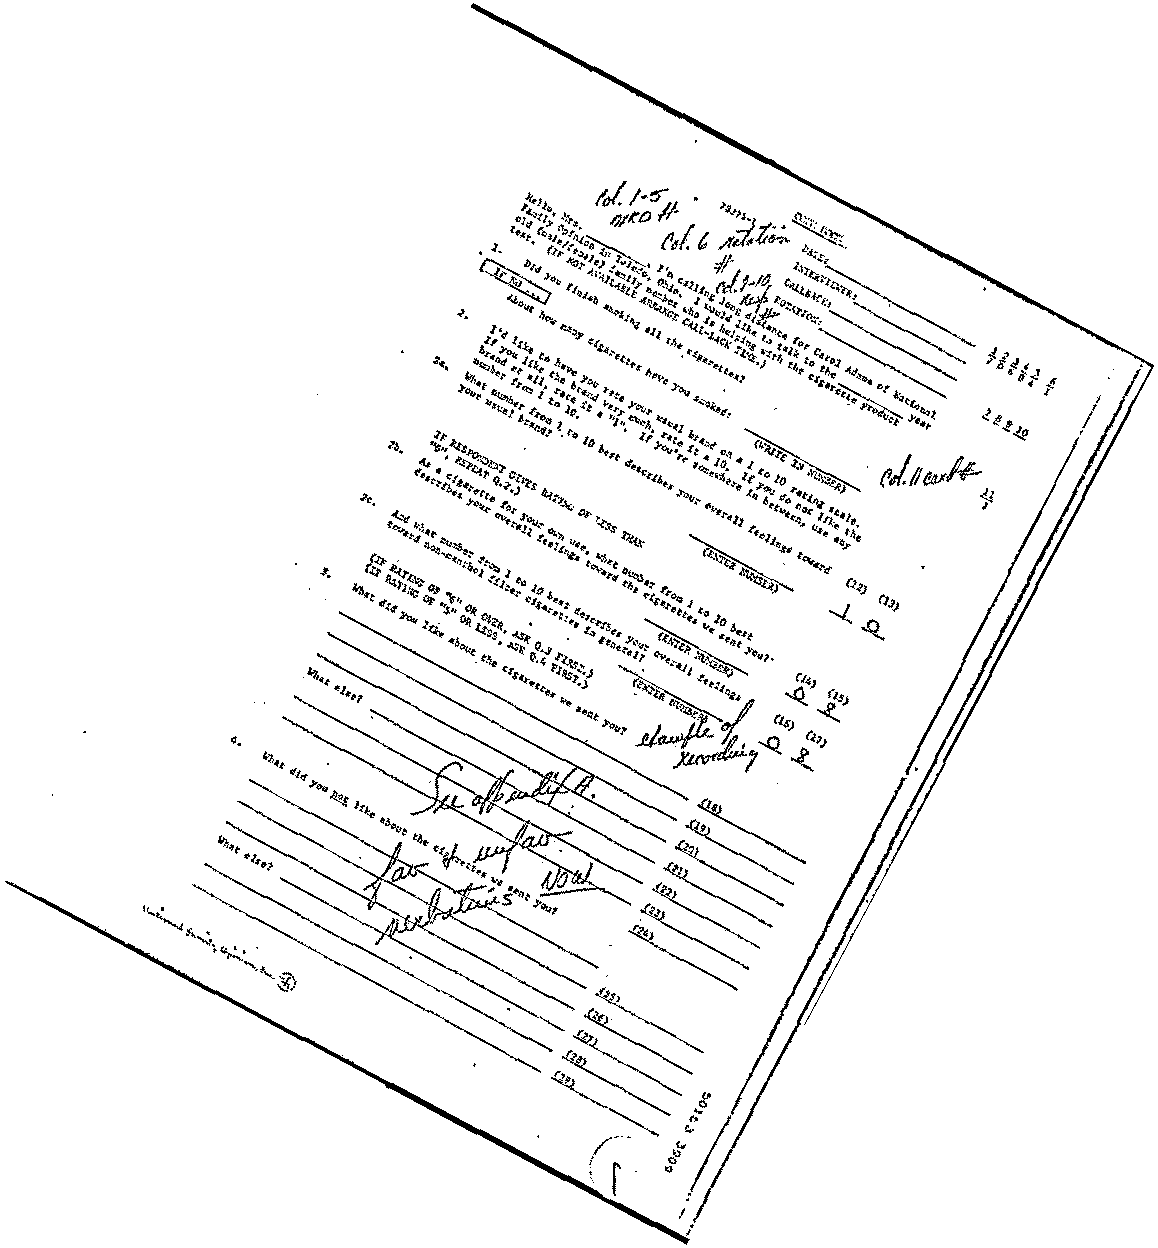 Col. 1-5
Col. 6 rotation
#
Col. 9-10
DATE:
INTERVIEWER:
CALLBACK:
ROTATION:
Hello, Mrs. I'm calling long distance for Carol Adams of National
Family Opinion in Toledo, Ohio. I would like to talk to the year
old (male/female) family member who is helping with the cigarette product
test. (IF NOT AVAILABLE ARRANGE CALL-BACK TIME.)
1. Did you finish smoking all the cigarettes?
If No...
About how many cigarettes have you smoked?
(WRITE IN NUMBER)
7 8 9 10
Col. 11 card #
11
2. I'd like to have you rate your usual brand on a 1 to 10 rating scale.
If you like the brand very much, rate it a 10. If you do not like the
brand at all, rate it a "1". If you're somewhere in between, use any
number from 1 to 10.
2a. What number from 1 to 10 best describes your overall feelings toward
your usual brand?
(ENTER NUMBER)
(12) (13)
1 0
IF RESPONDENT GIVES RATING OF LESS THAN
REPEAT Q.2.)
2b. As a cigarette for your own use, what number from 1 to 10 best
describes your overall feelings toward the cigarettes we sent you?
(ENTER NUMBER)
(14) (15)
0 8
2c. And what number from 1 to 10 best describes your overall feelings
toward non-menthol filter cigarettes in general?
(ENTER NUMBER)
(16) (17)
0 8
(IF RATING OF "6" OR OVER, ASK Q.3 FIRST.)
(IF RATING OF "5" OR LESS, ASK Q.4 FIRST.)
3. What did you like about the cigarettes we sent you?
example of
recording
(18)
(19)
(20)
What else?
(21)
(22)
(23)
(24)
See appendix A.
4. What did you not like about the cigarettes we sent you?
fav of unfav
verbatims now
(25)
(26)
What else?
(27)
(28)
(29)
National Family Opinion, Inc.